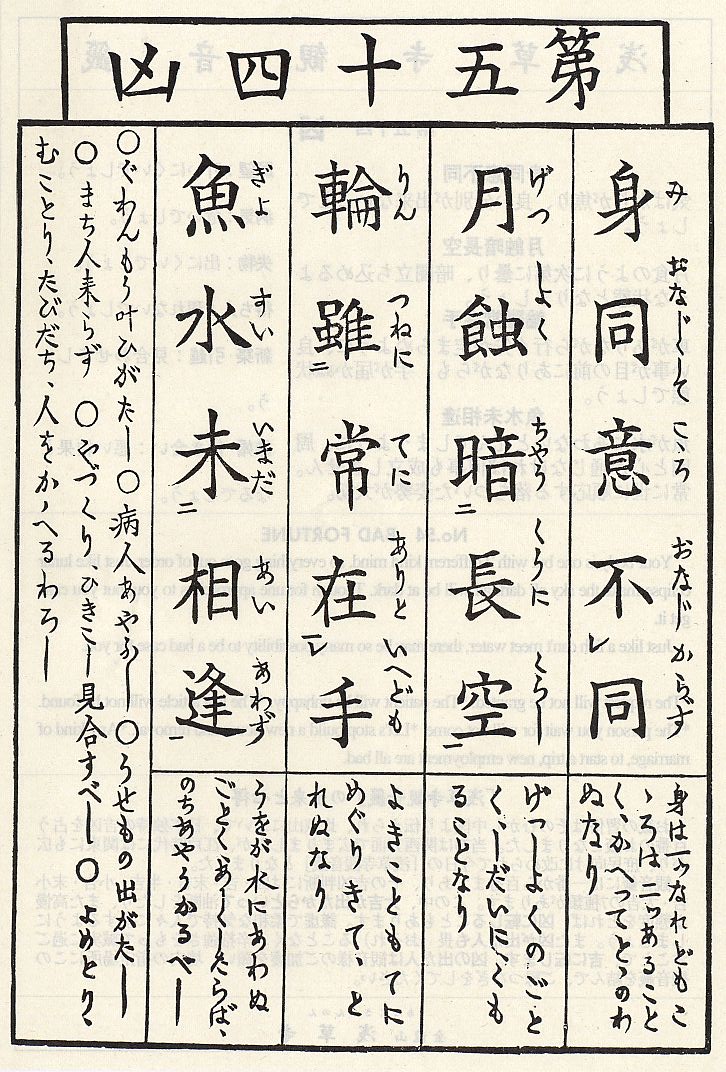 第五十四凶
身同意不レ同
み おなじくして こゝろ おなじからず
身は一つなれどもこ
ゝろは二つあること
くかへてとゝのわ
ぬなり
月蝕暗二長空一
げつ よく ちやう くうに くらし
げつしよくのごと
く、しだいにくも
ることなり
輪雖二常在一レ手
りん つねに てに ありと いへども
よきこともてに
めぐりきて、と
れぬなり
魚水未二相逢一
ぎよ すい いまだ あい あわず
うをが水にあわぬ
ごとし、あし さらば、
のちあやうかるべし
○ぐわんもう叶ひがたし○病人あやうし○うせもの出がたし
○まち人来らず ○やづくりひきこし見合すべし○よめとり、
むことり、たびだち、人をかゝへるわろし